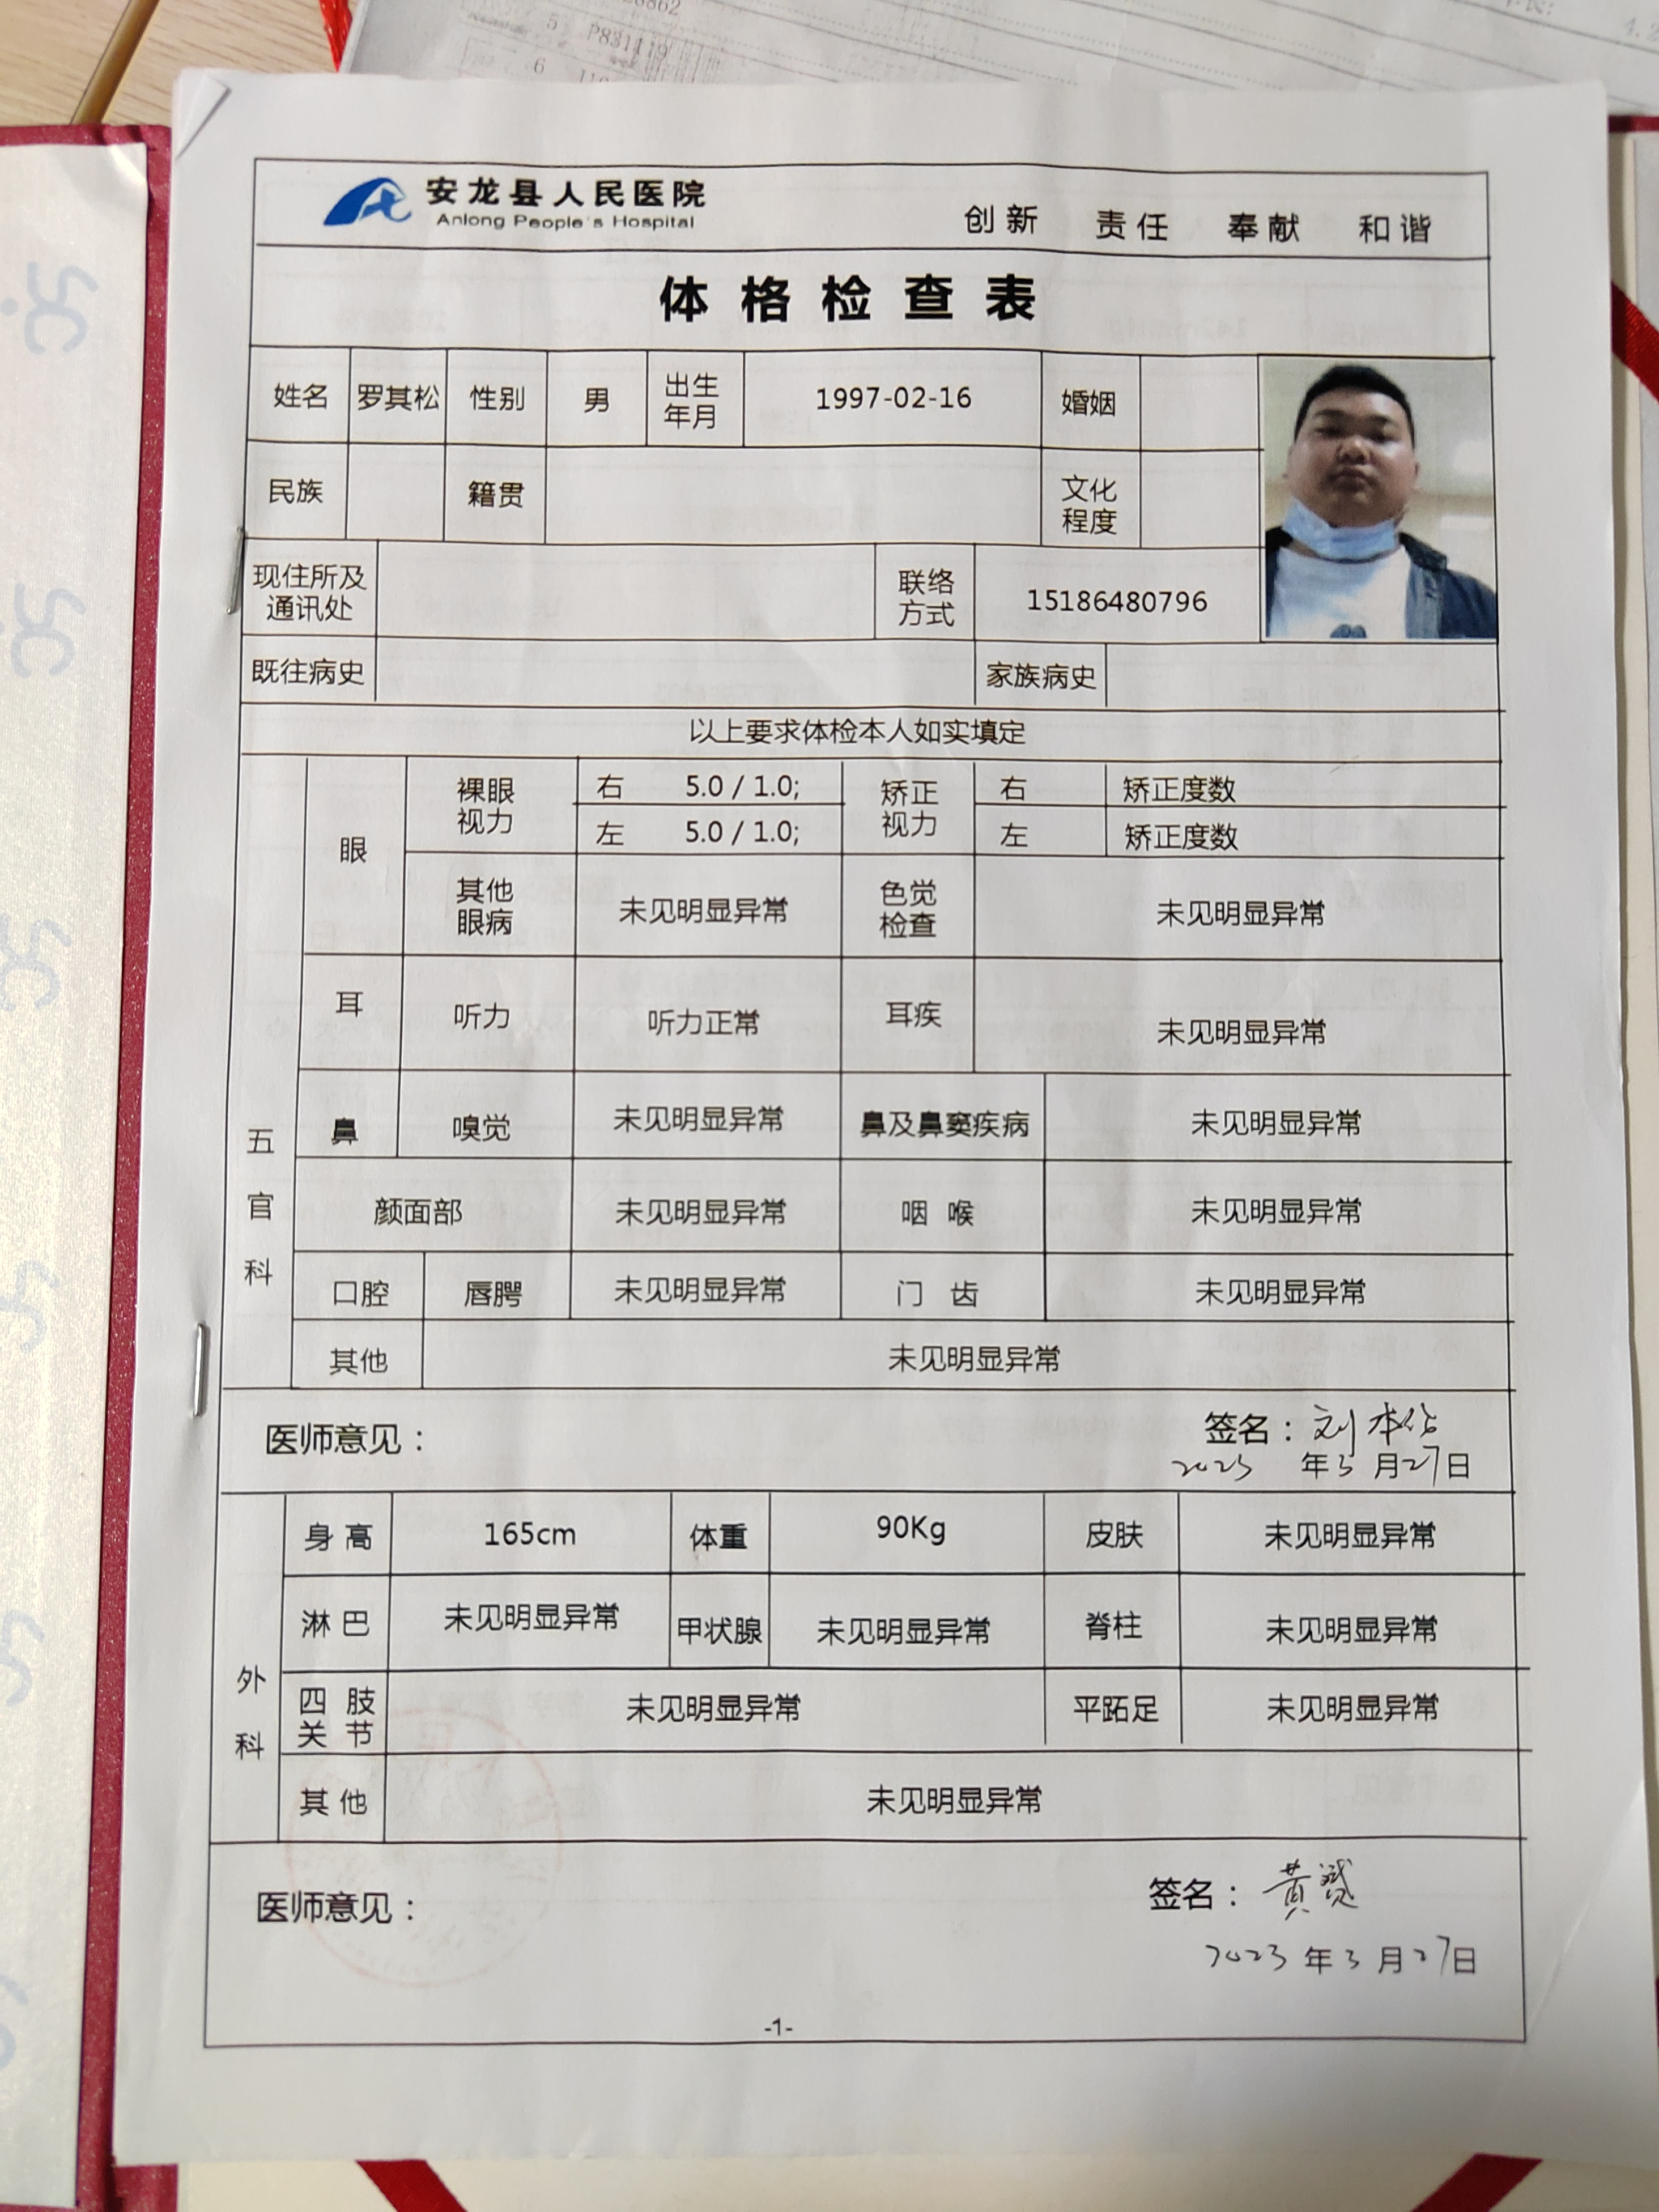 28862
5 P831119
6
4.2
安龙县人民医院
Anlong People's Hospital
创新 责任 奉献 和谐
体格检查表
姓名 罗其松 性别 男 出生年月 1997-02-16 婚姻
民族 籍贯 文化程度
现住所及通讯处 联络方式 15186480796
既往病史 家族病史
以上要求体检本人如实填定
五官科
眼 裸眼视力 右 5.0 / 1.0; 矫正视力 右 矫正度数
左 5.0 / 1.0; 左 矫正度数
其他眼病 未见明显异常 色觉检查 未见明显异常
耳 听力 听力正常 耳疾 未见明显异常
鼻 嗅觉 未见明显异常 鼻及鼻窦疾病 未见明显异常
颜面部 未见明显异常 咽喉 未见明显异常
口腔 唇腭 未见明显异常 门齿 未见明显异常
其他 未见明显异常
医师意见： 签名：刘本
2023 年3月27日
外科
身高 165cm 体重 90Kg 皮肤 未见明显异常
淋巴 未见明显异常 甲状腺 未见明显异常 脊柱 未见明显异常
四肢关节 未见明显异常 平跖足 未见明显异常
其他 未见明显异常
医师意见： 签名：黄
2023年3月27日
-1-